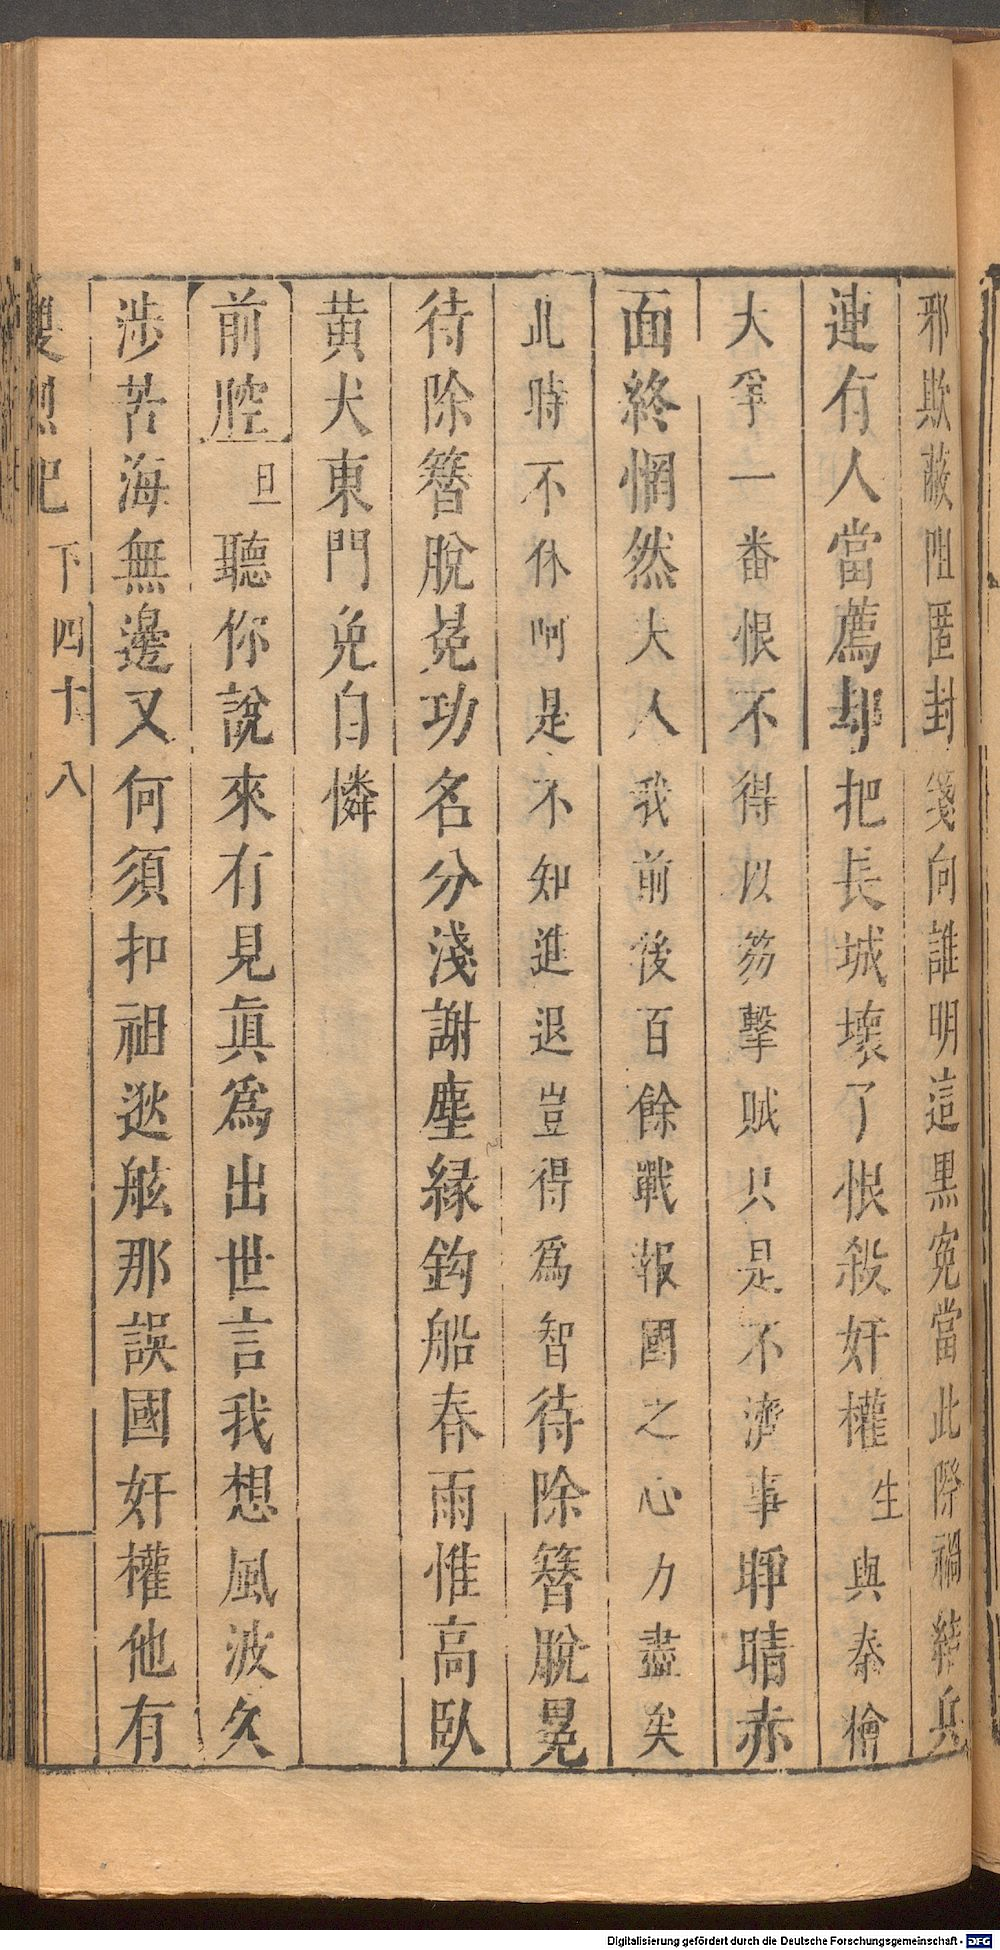 邪欺蔽阻匿封箋向誰明這黑寃當此際禍結兵
連有人當薦却把長城壞了恨殺奸權生與秦檜
大爭一番恨不得以笏擊賊只是不濟事睜睛赤
面終惘然大人我前後百餘戰報國之心力盡矣
此時不休呵是不知進退豈得爲智待除簪脫冕
待除簪脫冕功名分淺謝塵緣鈎船春雨惟高臥
黄犬東門免自憐
前腔旦聽你說來有見眞爲出世言我想風波久
涉苦海無邊又何須扣祖逖舷那誤國奸權他有
雙烈記 下 四十八
Digitalisierung gefördert durch die Deutsche Forschungsgemeinschaft - DFG